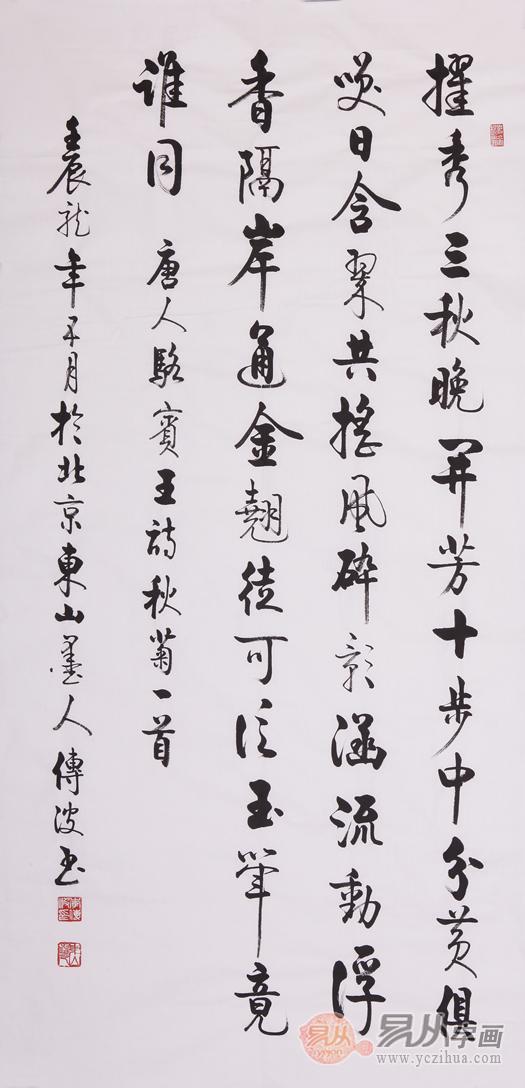 擢秀三秋晚開芳十步中分黄俱
咲日含翠共摇風碎影涵流動浮
香隔岸通金翹徒可泛玉斝竟
誰同 唐人駱賓王詩秋菊一首
壬辰龍年五月於北京東山墨人傳波書
易从
易从字画
www.yczihua.com